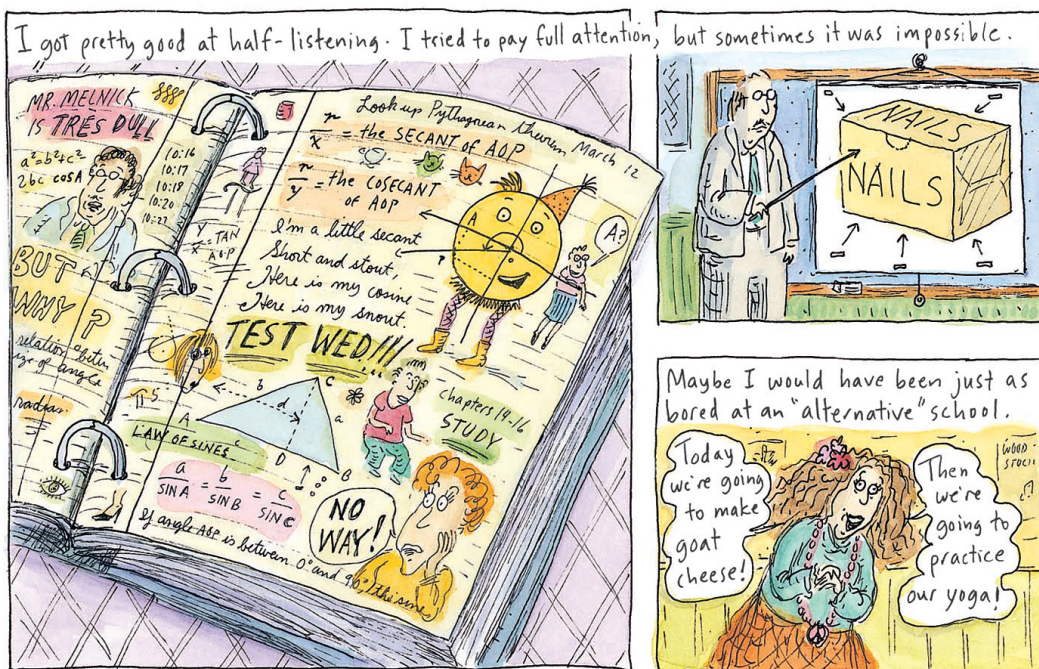 I got pretty good at half-listening. I tried to pay full attention, but sometimes it was impossible.
MR. MELNICK
IS TRÈS DULL
a²=b²+c²-
2bc cosA
10:16
10:17
10:18
10:20
10:22
y/x = TAN
AOP
BUT
WHY?
relation betw
size of angle
radian
π
Look up Pythagorean theorem
March
12
r/x = the SECANT of AOP
r/y = the COSECANT
of AOP
I'm a little secant
Short and stout,
Here is my cosine
Here is my snout.
A
P
A?
TEST WED!!!
chapters 14-16
STUDY
A
b
C
d
a
c
D
B
LAW OF SINES
a/SIN A = b/SIN B = c/SIN C
NO
WAY!
If angle AOP is between 0° and 90°, the sine
NAILS
NAILS
Maybe I would have been just as
bored at an "alternative" school.
Today
we're going
to make
goat
cheese!
Then
we're
going to
practice
our yoga!
WOOD
STOCK